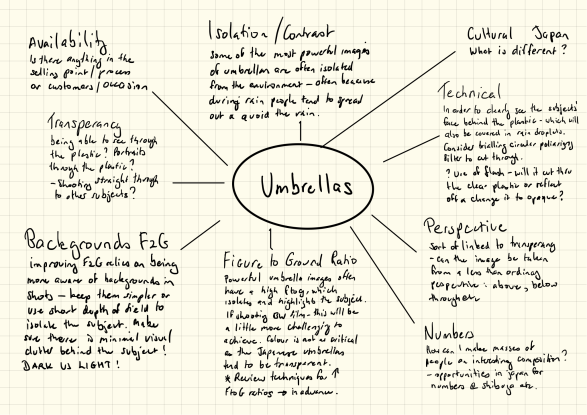 Umbrellas
Availability
Is there anything in the
selling point / process
or customers / occasion
Transparency
being able to see through
the plastic? Portraits
through the plastic?
- Shooting straight through
to other subjects?
Backgrounds F2G
improving F2G relies on being
more aware of backgrounds in
shots – keep them simpler or
use short depth of field to
isolate the subject. Make
sure there is minimal visual
clutter behind the subject!
DARK VS LIGHT!
Isolation / Contrast
Some of the most powerful images
of umbrellas are often isolated
from the environment – often because
during rain people tend to spread
out & avoid the rain.
Figure to Ground Ratio
Powerful umbrella images often
have a high ftog, which
isolates and highlights the subject.
If shooting BW film – this will be
a little more challenging to
achieve. Colour is not as critical
as the Japanese umbrellas
tend to be transparent.
* Review techniques for ↑
FtoG ratios → in advance.
Cultural Japan
What is different?
Technical
In order to clearly see the subjects'
face behind the plastic – which will
also be covered in rain droplets.
Consider trialling circular polarising
filter to cut through.
? Use of flash – will it cut thru
the clear plastic or reflect
off & change it to opaque?
Perspective
Sort of linked to transparency
- can the image be taken
from a less than ordinary
perspective: above, below
through etc
Numbers
How can I make masses of
people an interesting composition?
- opportunities in japan for
numbers @ shibuya etc.